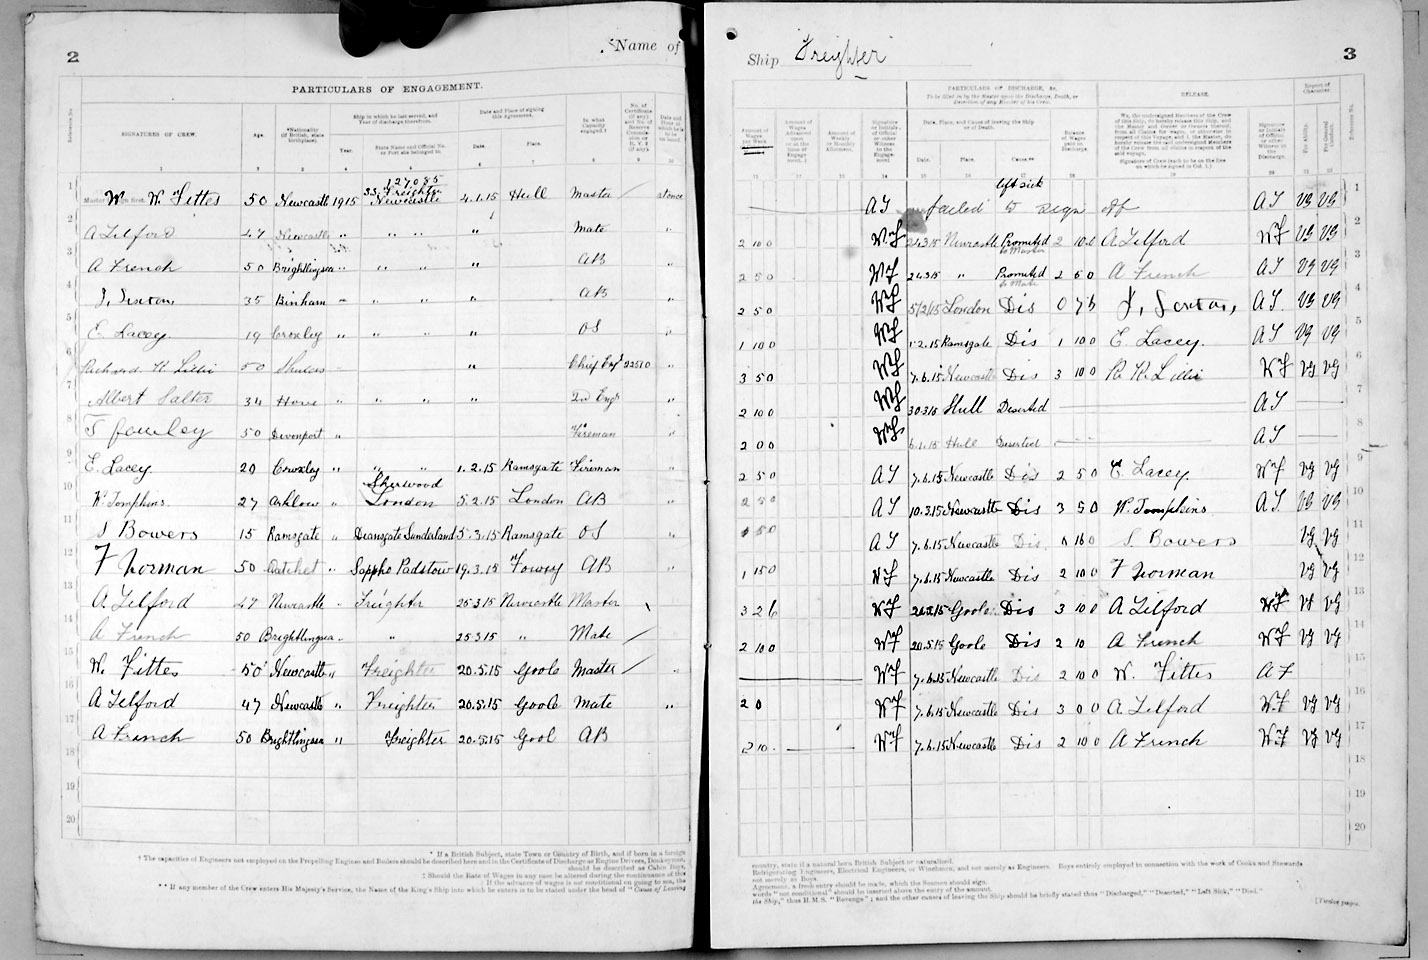 2
Name of
PARTICULARS OF ENGAGEMENT.
SIGNATURES OF CREW.
Age.
*Nationality (if British, state birthplace).
Ship in which he last served, and Year of discharge therefrom.
Year.
State Name and Official No. or Port she belonged to.
Date and Place of signing this Agreement.
Date.
Place.
In what Capacity engaged.†
No. of Certificate (if any)
1 2 3 4 5 6 7 8 9 10
127,085
1 Master Wm W. Fittes 50 Newcastle 1915 S.S. Freighter Newcastle 4.1.15 Hull Master at once
2 A Tilford 47 Newcastle " " " " Mate "
3 A French 50 Brightlingsea " " " " AB "
4 J, Sexton 35 Binham " " " " AB "
5 E. Lacey. 19 Croxley " " " " OS "
6 Richard K Lillie 50 Shields " Chief Engr 22510 "
7 Albert Salter 34 Hove " " " " 2nd Engr "
8 50 Devonport " Fireman "
9 E. Lacey. 20 Croxley " " " 1.2.15 Ramsgate Fireman "
10 W. Tompkins. 27 Arklow " Sherwood London 5.2.15 London AB "
11 S Bowers 15 Ramsgate " Deansgate Sunderland 5.3.15 Ramsgate OS "
12 F Norman 50 Datchet " Sappho Padstow 19.3.15 Fowey AB "
13 A Tilford 47 Newcastle " Freighter 25 3 15 Newcastle Master
14 A French 50 Brightlingsea " " 25 3 15 " Mate
15 W. Fittes 50 Newcastle " Freighter 20.5.15 Goole Master "
16 A Tilford 47 Newcastle " Freighter 20.5.15 Goole Mate "
17 A French 50 Brightlingsea " Freighter 20.5.15 Gool AB
18
19
20
* If a British Subject, state Town or Country of Birth, and if born in a foreign
† The capacities of Engineers not employed on the Propelling Engines and Boilers should be described here and in the Certificate of Discharge as Engine Drivers, Donkeymen,
should be described as Cabin Boys,
‡ Should the Rate of Wages in any case be altered during the continuance of this
‖ If the advance of wages is not conditional on going to sea, the
** If any member of the Crew enters His Majesty's Service, the Name of the King's Ship into which he enters is to be stated under the head of "Cause of Leaving
Ship "Freighter"
3
PARTICULARS OF DISCHARGE, &c.
To be filled in by the Master upon the Discharge, Death, or Desertion of any Member of his Crew.
Date, Place, and Cause of leaving the Ship or of Death.
Date.
Place.
Cause.**
Balance of Wages paid on Discharge.
RELEASE.
We, the undersigned Members of the Crew of this Ship, do hereby release this Ship, and the Master and Owner or Owners thereof, from all Claims for wages, or otherwise in respect of this Voyage, and I, the Master, do hereby release the said undersigned Members of the Crew from all claims in respect of the said voyage.
Signature of Crew (each to be on the line on which he signed in Col. 1.)
Report of Character
For Ability.
left sick
AT failed to sign off AT VG VG 1
2 10 0 WF 24.3.15 Newcastle Promoted to Master 2 10 0 A Tilford WF VG VG 2
2 5 0 WF 24 3 15 " Promoted to Mate 2 5 0 A French AT VG VG 3
2 5 0 WF 5/2/15 London Dis 0 7 6 J, Sexton, AT VG VG 4
1 10 0 WF 1.2.15 Ramsgate Dis 1 10 0 E. Lacey. AT VG VG 5
3 5 0 WF 7.6.15 Newcastle Dis 3 10 0 R K Lillie WF VG VG 6
2 10 0 WF 30 3 15 Hull Deserted AT 7
2 0 0 WF 6.1.15 Hull Deserted AT 8
2 5 0 AT 7.6.15 Newcastle Dis 2 5 0 E. Lacey WF VG VG 9
2 5 0 AT 10.3.15 Newcastle Dis 3 5 0 W. Tompkins AT VG VG 10
AT 7.6.15 Newcastle Dis. S Bowers VG VG 11
WF 7.6.15 Newcastle Dis 2 10 0 F Norman VG VG 12
3 2 6 WF Goole Dis 3 10 0 A Tilford WF VG VG 13
2 10 0 WF 20.5.15 Goole Dis 2 10 A French WF VG VG 14
WF 7.6.15 Newcastle Dis 2 10 0 W. Fittes A F 15
2 0 WF 7.6.15 Newcastle Dis 3 0 0 A Tilford WF VG VG 16
2 10. WF 7.6.15 Newcastle Dis 2 10 0 A French WF VG VG 17
18
19
20
country, state if a natural born British Subject or naturalised.
Refrigerating Engineers, Electrical Engineers, or Winchmen, and not merely as Engineers. Boys entirely employed in connection with the work of Cooks and Stewards
not merely as Boys.
Agreement, a fresh entry should be made, which the Seamen should sign.
words "not conditional" should be inserted above the entry of the amount.
the Ship," thus H.M.S. "Revenge"; and the other causes of leaving the Ship should be briefly stated thus "Discharged," "Deserted," "Left Sick," "Died."
[Twelve pages.